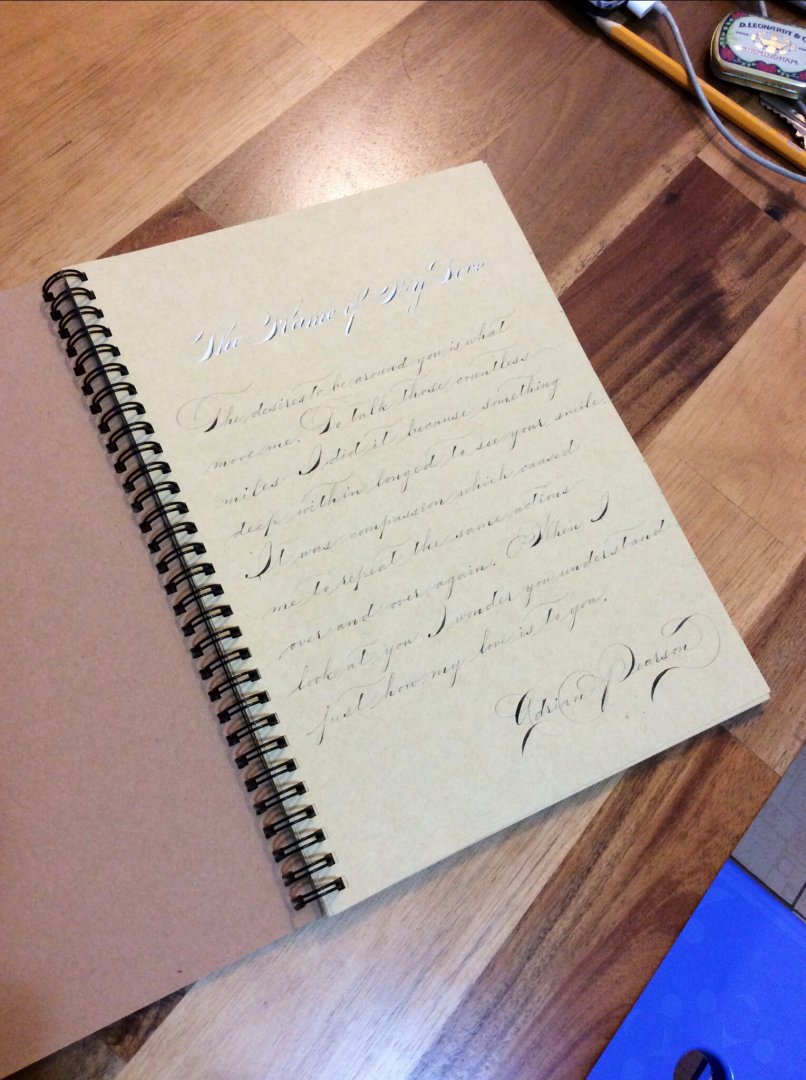 The Name of My Love
The desires to be around you is what
move me. To talk those countless
miles I did it because something
deep within longed to see your smile.
It was compassion which caused
me to repeat the same actions
over and over again. When I
look at you I wonder you understand
just how my love is to you.
Adrian Pearson
D. LEONARDT & Co
BIRMINGHAM